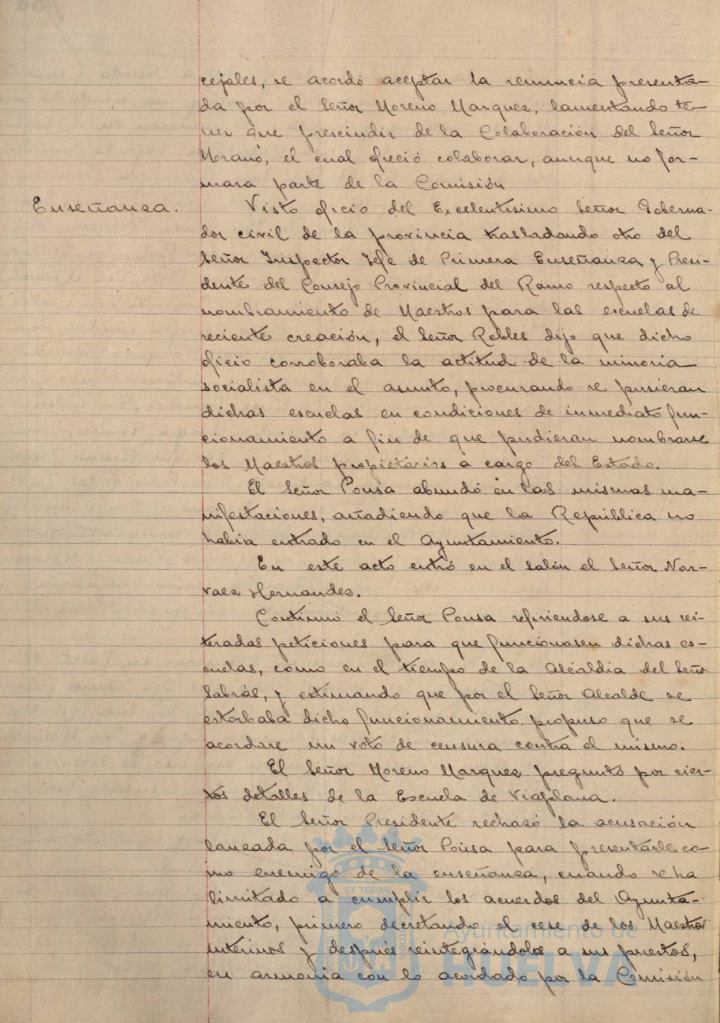 cejales, se acordó aceptar la renuncia presenta-
da por el Señor Moreno Marquez, lamentando te-
ner que prescindir de la Colaboración del Señor
Moreno, el cual ofreció colaborar, aunque no for-
mara parte de la Comisión
Enseñanza.
Visto oficio del Excelentísimo Señor Goberna-
dor civil de la provincia trasladando otro del
Señor Inspector Jefe de Primera Enseñanza y Presi-
dente del Consejo Provincial del Ramo respecto al
nombramiento de Maestros para las escuelas de
reciente creación, el Señor Robles dijo que dicho
oficio corroboraba la actitud de la minoria
socialista en el asunto, procurando se pusieran
dichas escuelas en condiciones de inmediato fun-
cionamiento a fin de que pudieran nombrarse
los Maestros propietarios a cargo del Estado.
El Señor Pousa abundó en las mismas ma-
nifestaciones, añadiendo que la República no
habia entrado en el Ayuntamiento.
En este acto entró en el salón el Señor Nar-
vaez Hernandez.
Continuó el Señor Pousa refiriendose a sus rei-
teradas peticiones para que funcionasen dichas es-
cuelas, como en el tiempo de la Alcaldia del Señor
Sabrás, y estimando que por el Señor Alcalde se
estorbaba dicho funcionamiento, propuso que se
acordase un voto de censura contra el mismo.
El Señor Moreno Marquez preguntó por cier-
tos detalles de la Escuela de Viaplana.
El Señor Presidente rechazó la acusación
lanzada por el Señor Pousa para presentarle co-
mo enemigo de la enseñanza, cuando se ha
limitado a cumplir los acuerdos del Ayunta-
miento, primero decretando el cese de los Maestros
interinos y después reintegrándolos a sus puestos,
en armonia con lo acordado por la Comisión
Ayuntamiento de
HUELVA